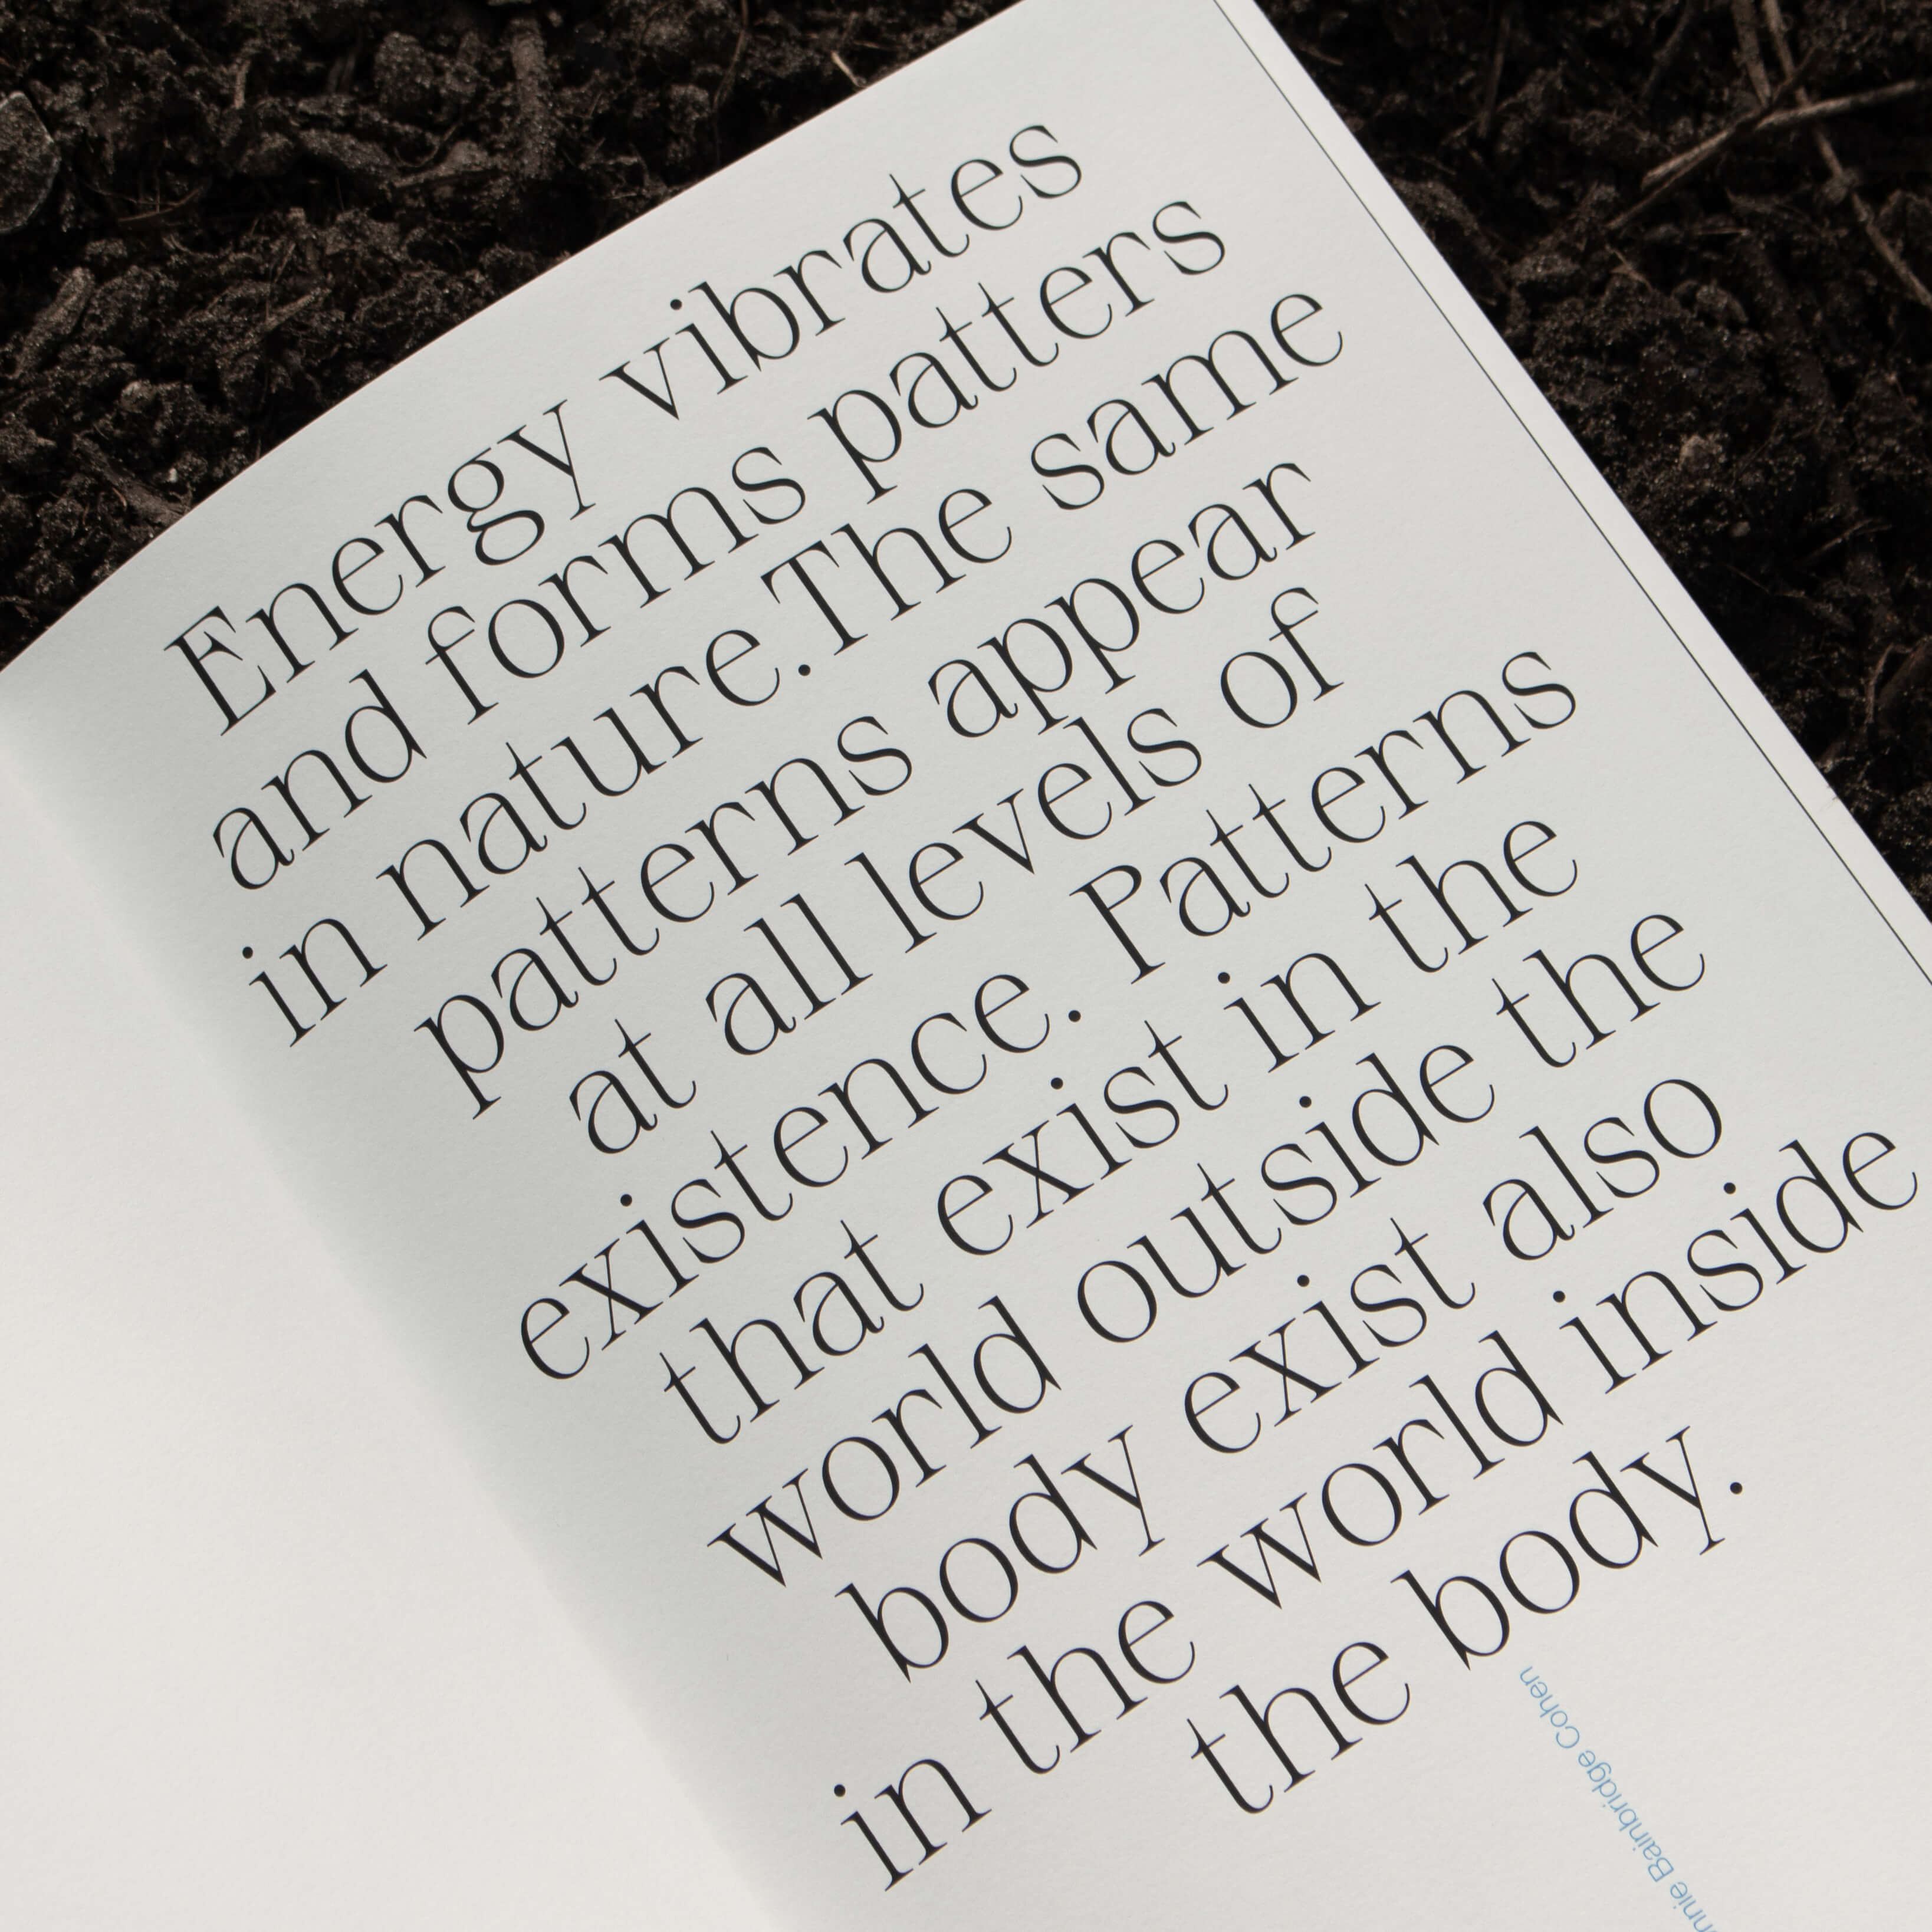 Energy vibrates
and forms patters
in nature.The same
patterns appear
at all levels of
existence. Patterns
that exist in the
world outside the
body exist also
in the world inside
the body.
Bainbridge Cohen